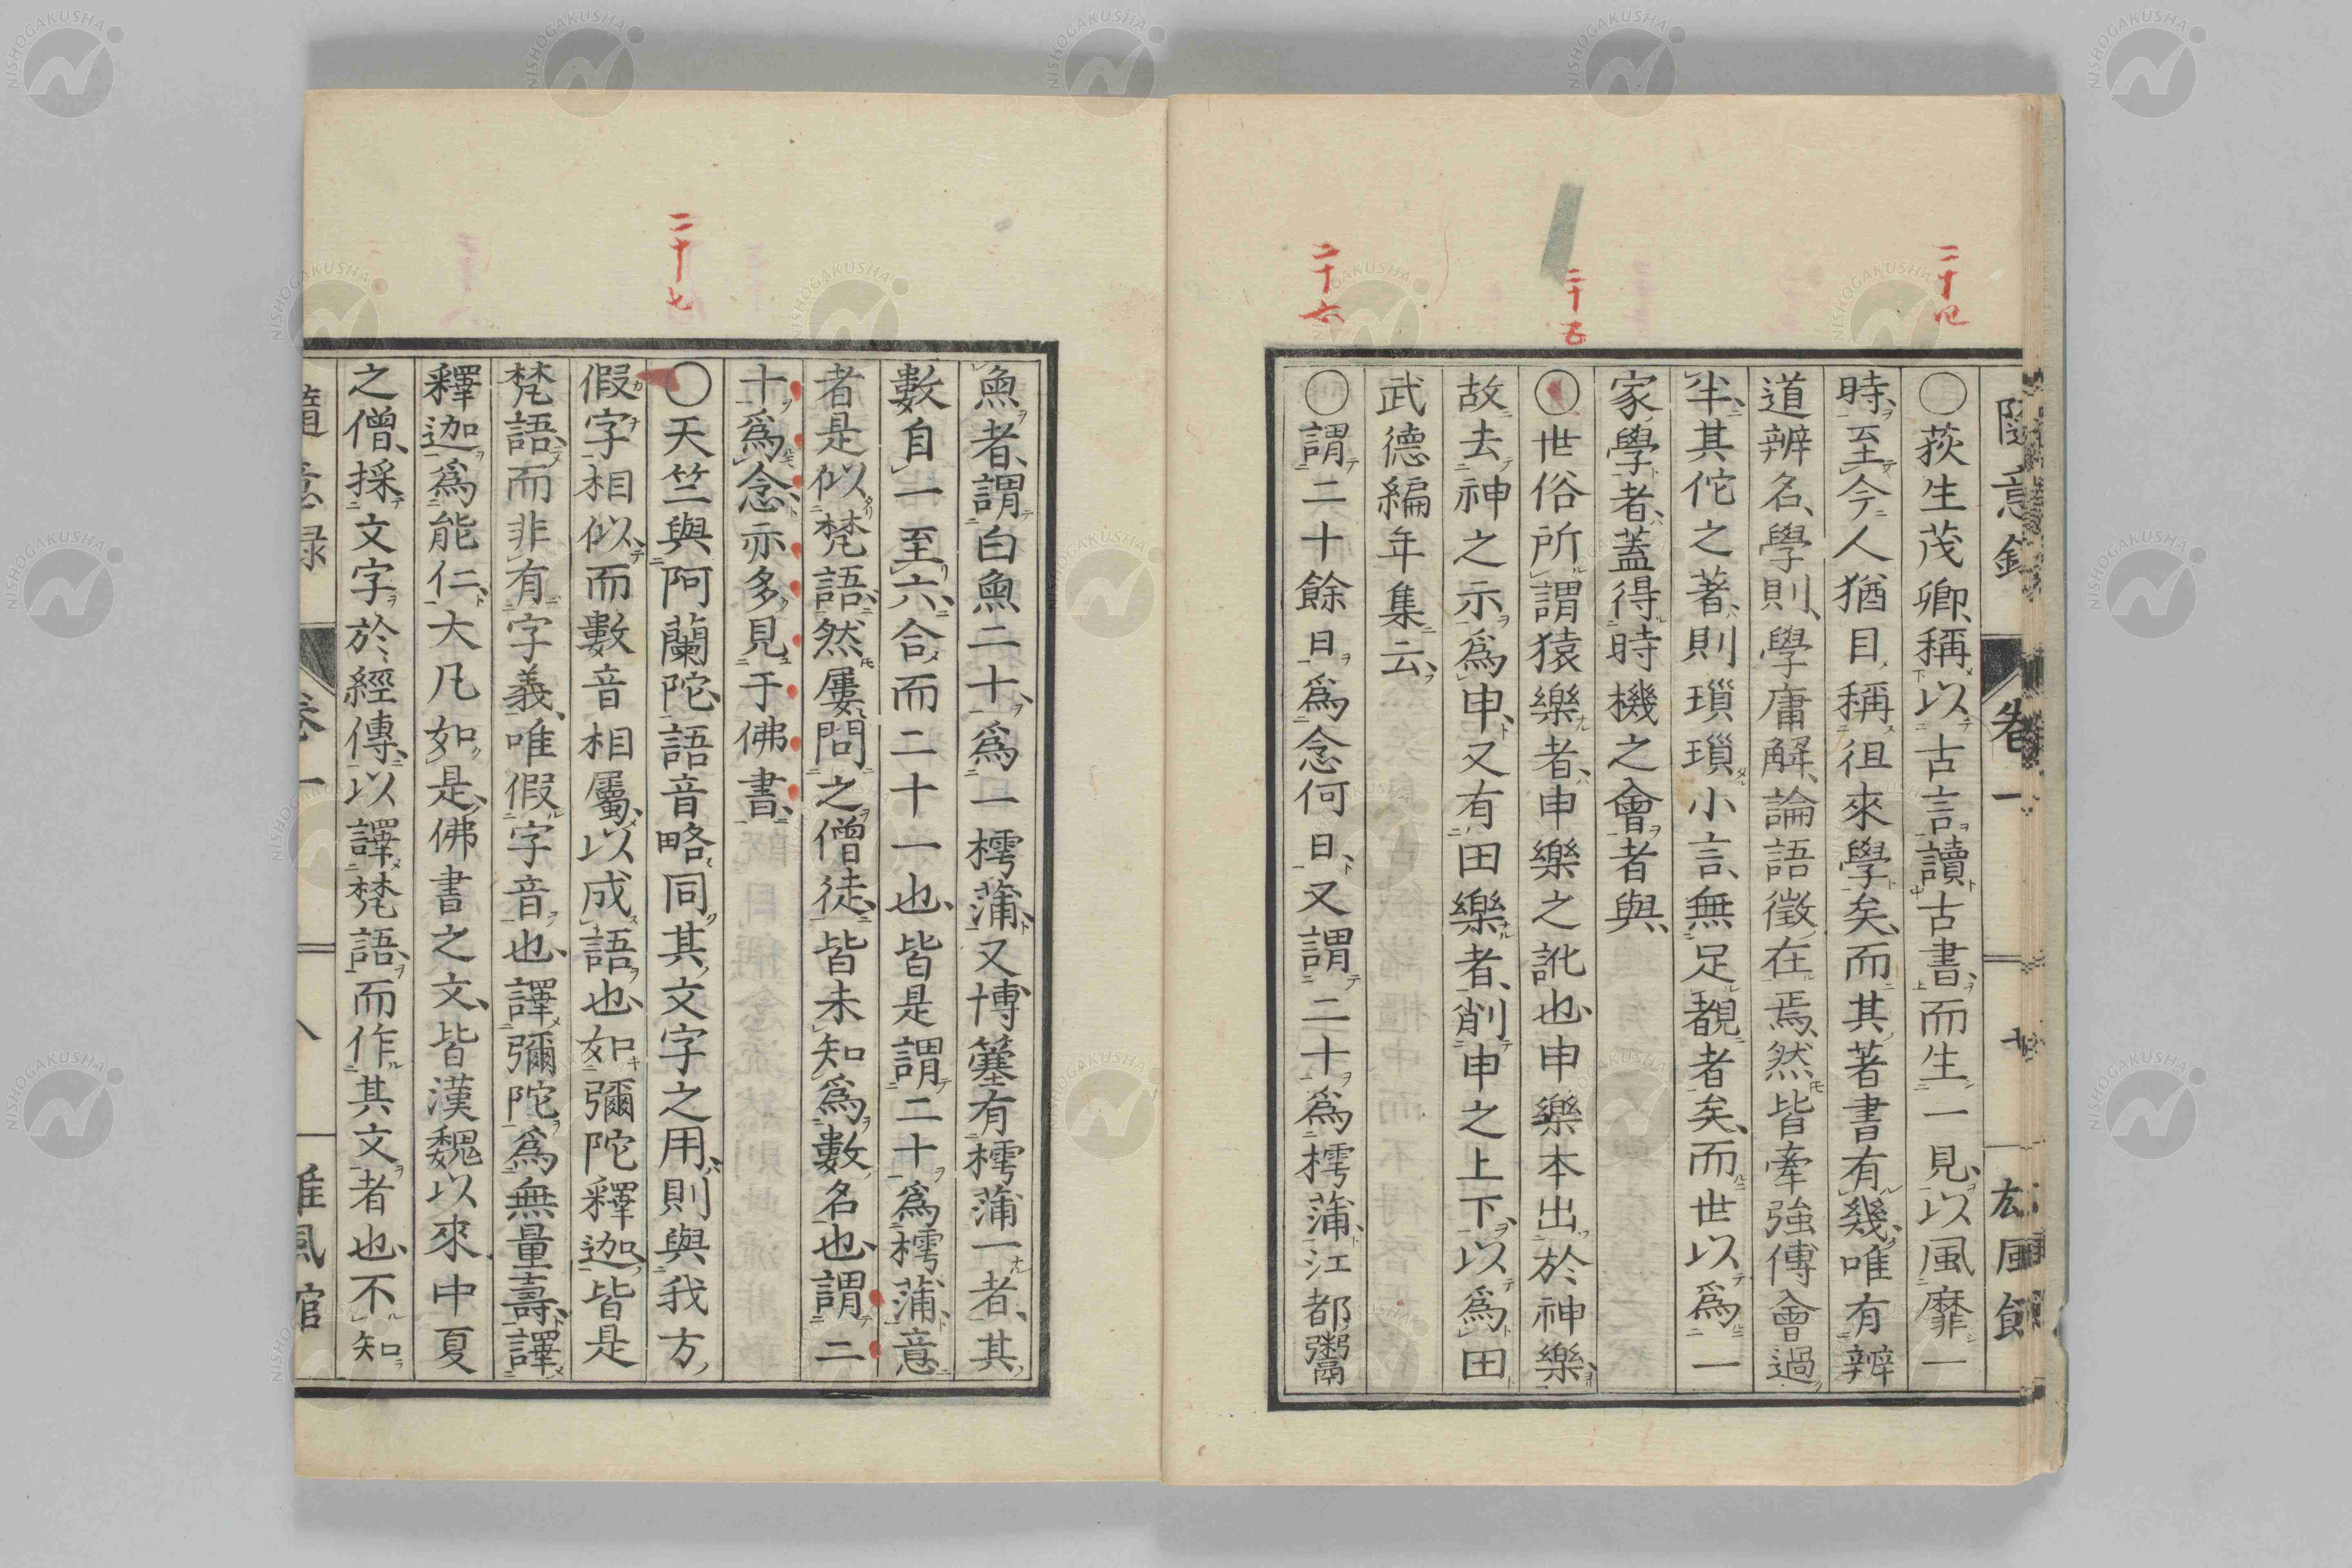 隨意錄　卷一　七
二十四
〇荻生茂卿、稱以古言讀古書、而生一見、以風靡一
時、至今人猶目稱徂來學矣、而其著書有幾、唯有辨
道辨名、學則、學庸解、論語徵在焉、然皆牽強傅會過
半、其佗之著、則瑣瑣小言、無足覩者矣、而世以爲一
家學者、蓋得時機之會者與、
二十五
〇世俗所謂猿樂者、申樂之訛也、申樂本出於神樂、
故去神之示爲申、又有田樂者、削申之上下、以爲田
武德編年集云、
二十六
〇謂二十餘日爲念何日、又謂二十爲樗蒲、江都鬻
魚者、謂白魚二十、爲一樗蒲、又博簺有樗蒲一者、其
數自一至六、合而二十一也、皆是謂二十爲樗蒲、意
者是似梵語、然屢問之僧徒、皆未知爲數名也、謂二
十爲念、亦多見于佛書、
二十七
〇天竺與阿蘭陀、語音略同、其文字之用、則與我方
假字相似、而數音相屬、以成語也、如彌陀釋迦、皆是
梵語、而非有字義、唯假字音也、譯彌陀爲無量壽、譯
釋迦爲能仁、大凡如是、佛書之文、皆漢魏以來中夏
之僧、採文字於經傳、以譯梵語、而作其文者也、不知
隨意錄　卷一　八
NISHOGAKUSHA